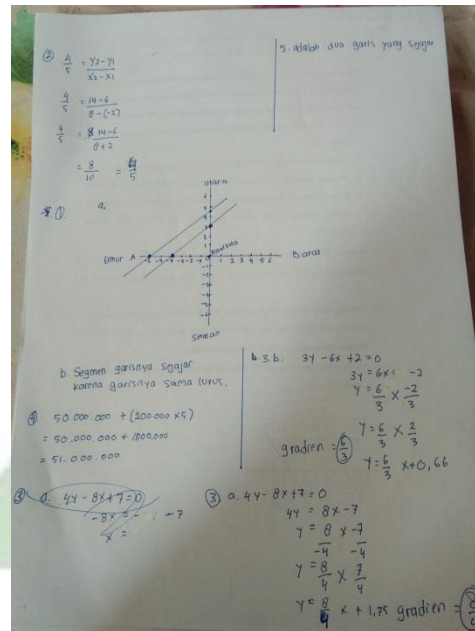 ② 4/5 = Y2-Y1 / X2-X1
4/5 = 14-6 / 8-(-2)
4/5 = 14-6 / 8+2
= 8/10 = 4/5
5. adalah dua garis yang sejajar
① a.
Utara
Timur A
Barat
Selatan
b. Segmen garisnya sejajar
karena garisnya sama lurus.
④ 50.000.000 + (200.000 x5)
= 50.000.000 + 1000.000
= 51.000.000
3.b. 3y -6x +2 = 0
3y = 6x -2
y = 6/3 x -2/3
y = 6/3 x 2/3
gradien = 6/3
y = 6/3 x+0,66
③ a. 4y - 8x +7 = 0
-8x = -7
x =
③ a. 4y - 8x +7 = 0
4y = 8x -7
y = 8/-4 x -7/-4
y = 8/4 x 7/4
y = 8/4 x + 1,75 gradien =